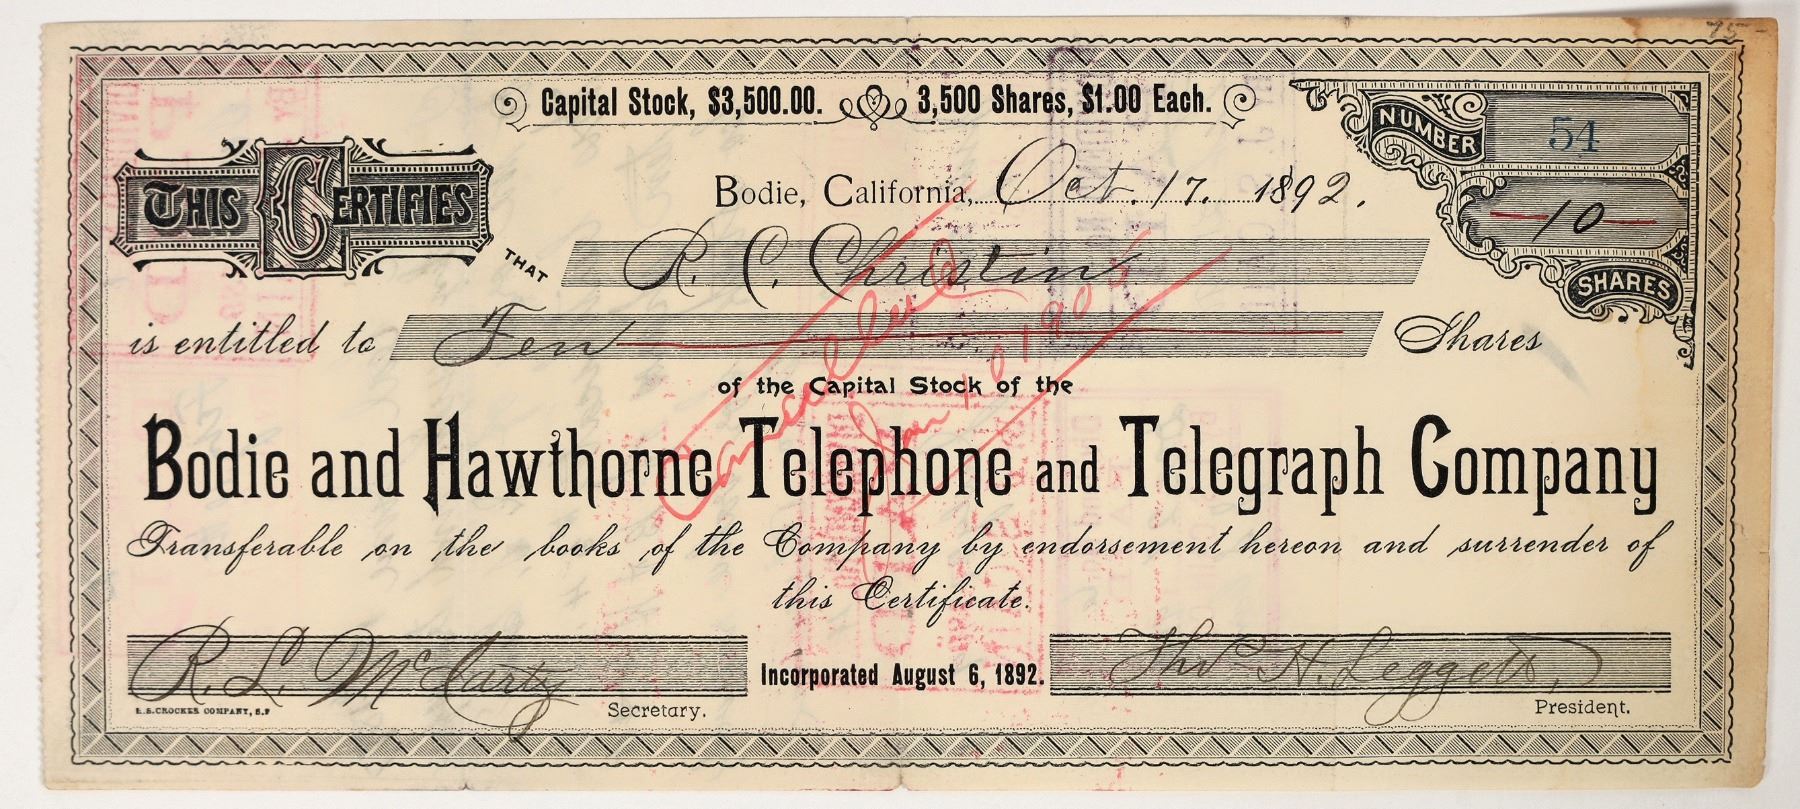 75-
Capital Stock, $3,500.00. 3,500 Shares, $1.00 Each.
NUMBER 51
THIS CERTIFIES
Bodie, California, Oct. 17. 1892.
10
SHARES
THAT R. C. Christin
is entitled to Ten Shares
Cancelled
Jan
of the Capital Stock of the
Bodie and Hawthorne Telephone and Telegraph Company
Transferable on the books of the Company by endorsement hereon and surrender of
this Certificate.
R. L. McCarty
Incorporated August 6, 1892.
Theo H. Leggett
H.S. CROCKER COMPANY, S.F
Secretary.
President.